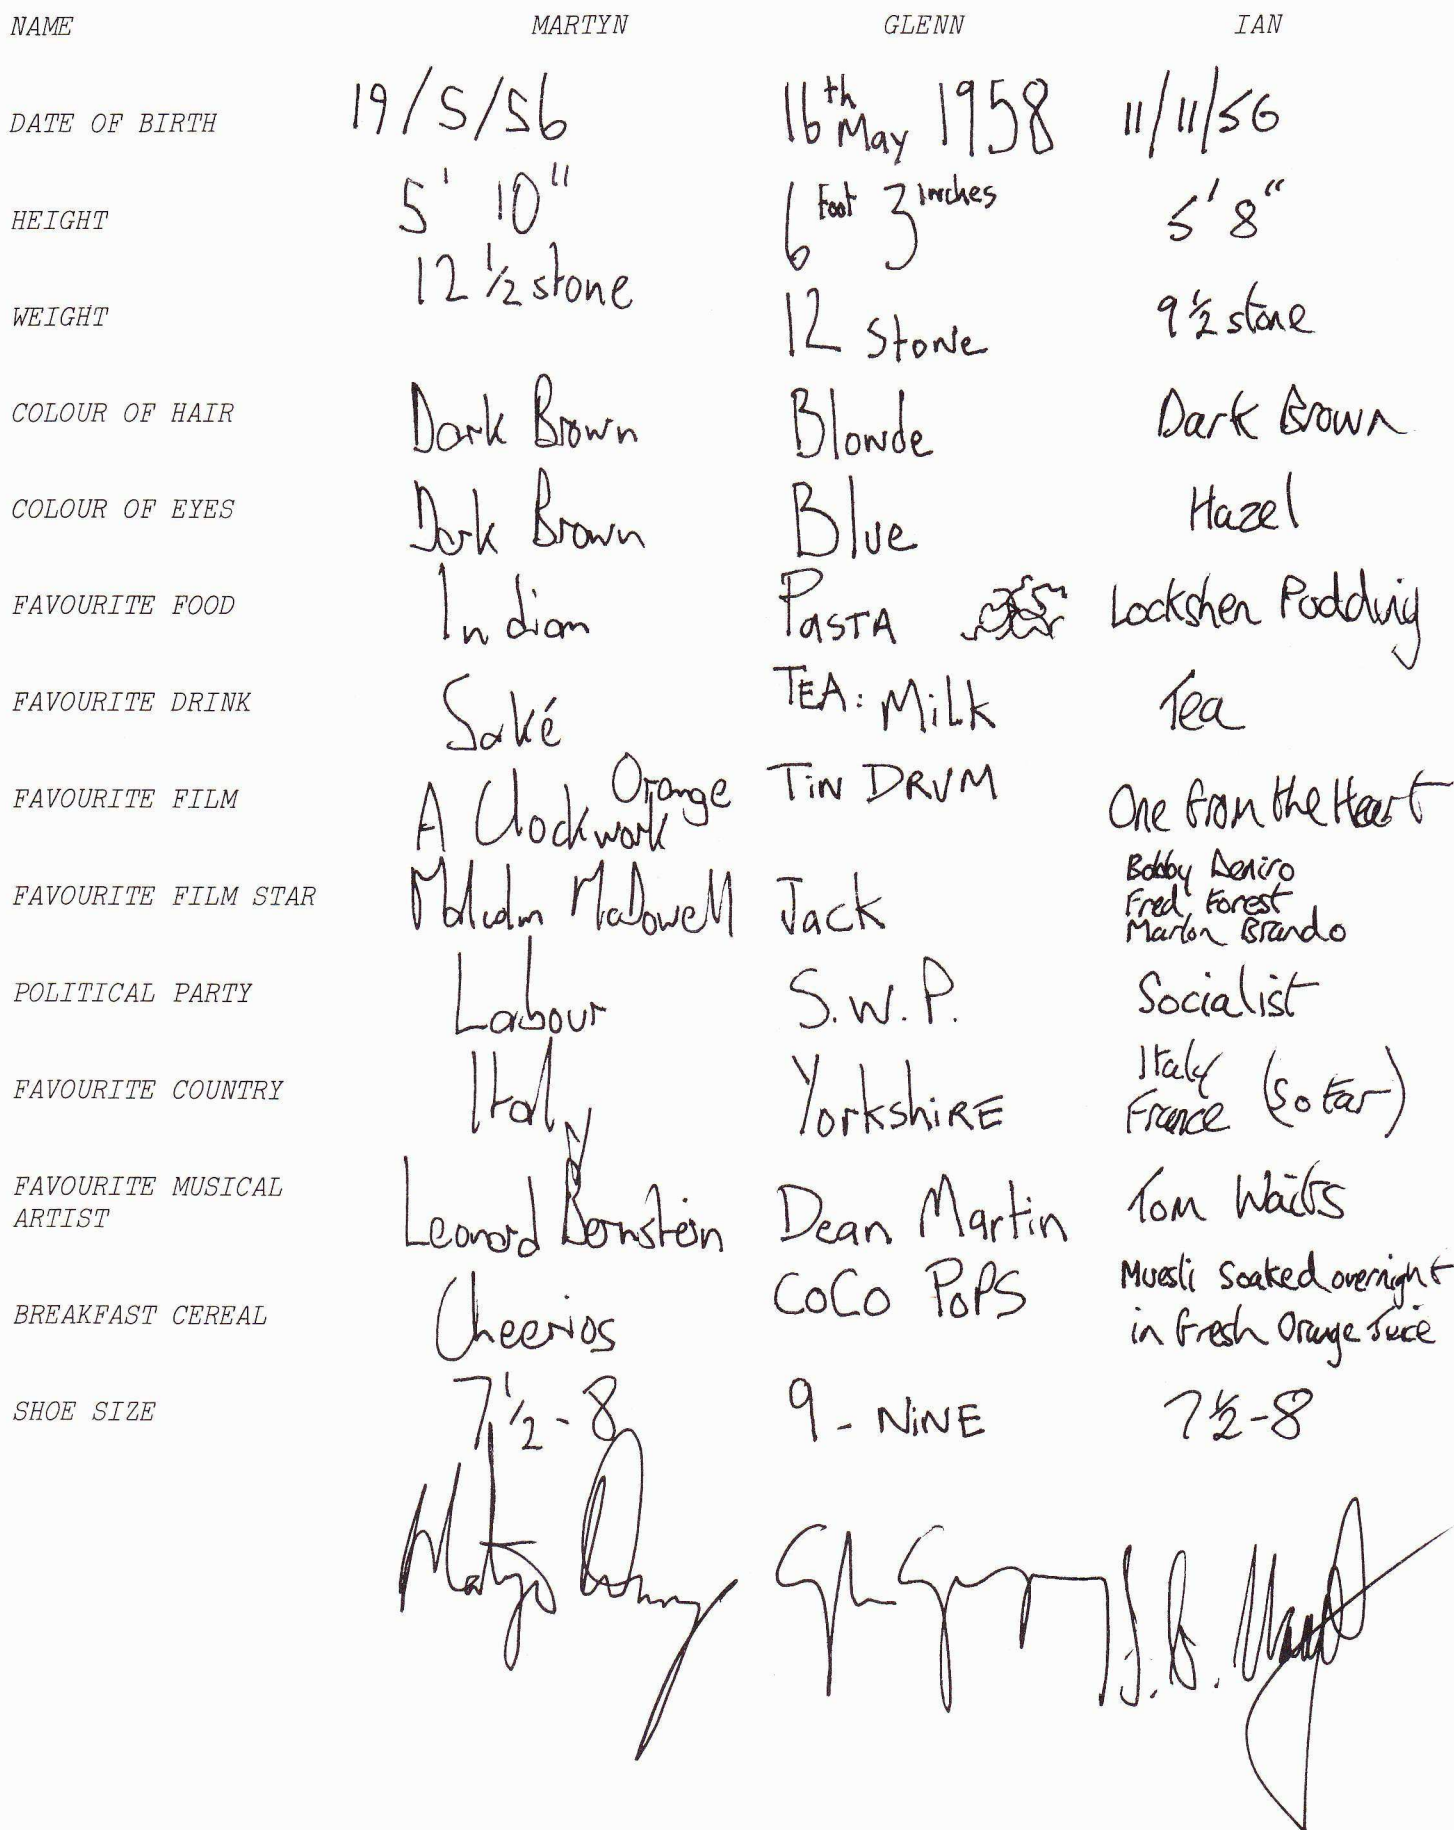 NAME MARTYN GLENN IAN
DATE OF BIRTH 19/5/56 16th May 1958 11/11/56
HEIGHT 5' 10" 6 Foot 3 inches 5' 8"
WEIGHT 12 1/2 stone 12 Stone 9 1/2 stone
COLOUR OF HAIR Dark Brown Blonde Dark Brown
COLOUR OF EYES Dark Brown Blue Hazel
FAVOURITE FOOD Indian PASTA Lockshen Pudding
FAVOURITE DRINK Saké TEA: Milk Tea
FAVOURITE FILM A Clockwork Orange TiN DRUM One from the Heart
FAVOURITE FILM STAR Malcolm McDowell Jack Bobby Deniro
Fred Forest
Marlon Brando
POLITICAL PARTY Labour S.W.P. Socialist
FAVOURITE COUNTRY Italy YorkshiRE Italy
France (So Far)
FAVOURITE MUSICAL
ARTIST Leonard Bernstein Dean Martin Tom Waits
BREAKFAST CEREAL Cheerios CoCo PoPS Muesli Soaked overnight
in fresh Orange Juice
SHOE SIZE 7 1/2 - 8 9 - NiNE 7 1/2 - 8